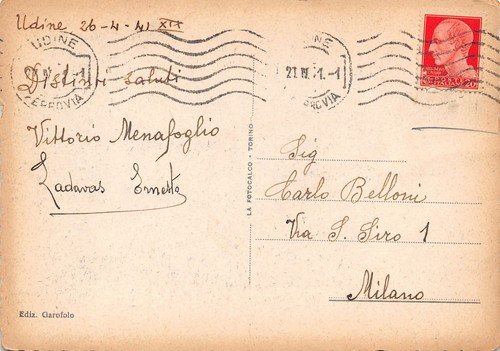 Udine 26-4-41 XIX
UDINE
FERROVIA
Distinti saluti
Vittorio Menafoglio
Ladavas Ernesto
FERROVIA
POSTE ITALIANE
20
LA FOTOCALCO - TORINO
Sig
Carlo Belloni
Via S. Siro 1
Milano
Ediz. Garofolo